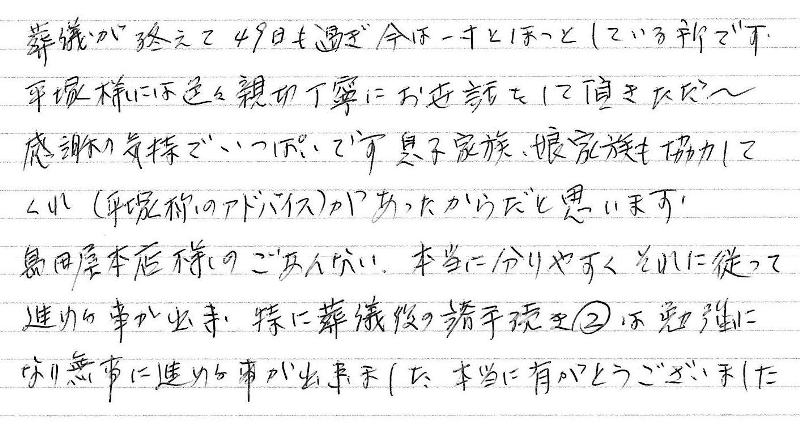 葬儀が終えて49日も過ぎ今は一寸とほっとしている所です.
平塚様には色々親切丁寧にお世話をして頂きただ〜
感謝の気持でいっぱいです 息子家族、娘家族も協力して
くれ(平塚様のアドバイス)があったからだと思います.
島田屋本店様のごあんない、本当に分りやすくそれに従って
進める事が出来、特に葬儀後の諸手続き②は勉強に
なり無事に進める事が出来ました、本当に有がとうございました